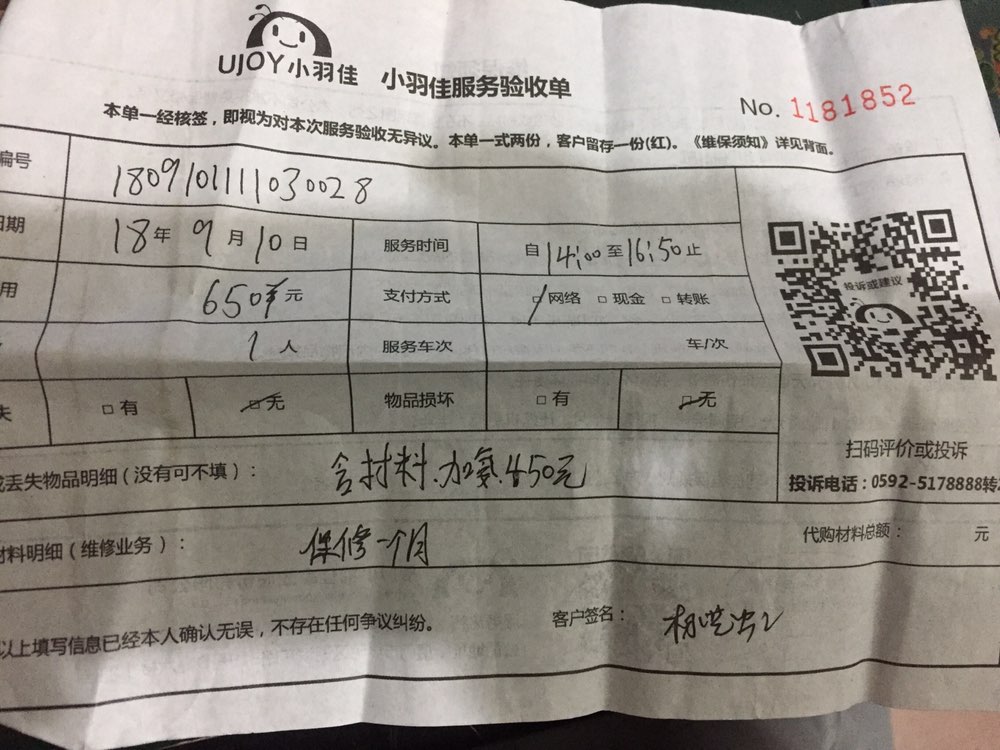 UJOY小羽佳 小羽佳服务验收单
No. 1181852
本单一经核签，即视为对本次服务验收无异议。本单一式两份，客户留存一份(红)。《维保须知》详见背面。
编号 180910111030028
日期 18年9月10日 服务时间 自14:00至16:50止
用 650¥元 支付方式 □网络 □现金 □转账
1人 服务车次 车/次
失 □有 □无 物品损坏 □有 □无
投诉或建议
扫码评价或投诉
投诉电话：0592-5178888转2
或丢失物品明细（没有可不填）： 含材料.加氨.450元
材料明细（维修业务）： 保修一个月 代购材料总额： 元
以上填写信息已经本人确认无误，不存在任何争议纠纷。 客户签名：